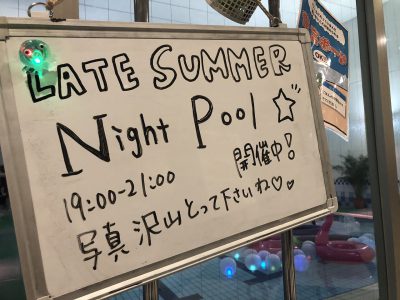 LATE SUMMER
Night Pool ☆
19:00-21:00 開催中!
写真沢山とって下さいね♡♡